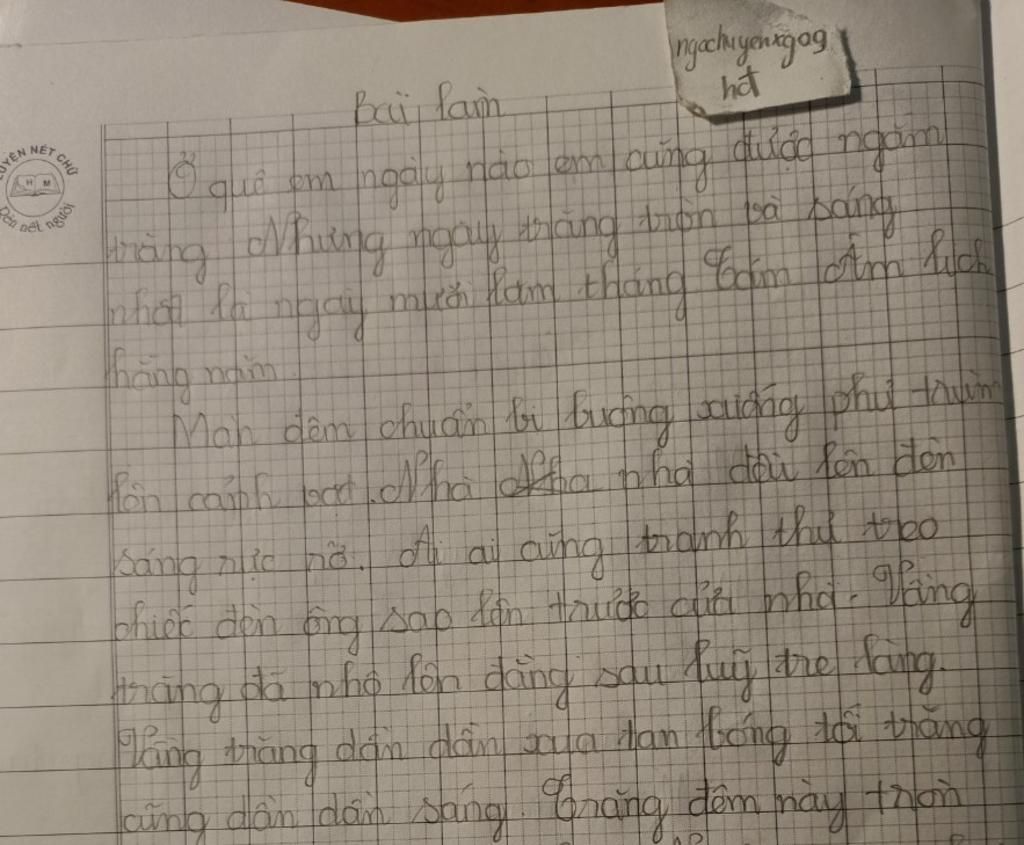 ngochuyenxgog
hđt
UYỆN NÉT CHỮ
H M
Rèn nét người
Bài làm
Ở quê em ngày nào em cũng được ngắm
trăng Những ngày trăng tròn và sáng
nhất là ngày mười lăm tháng Tám Âm lịch
hằng năm.
Màn đêm chuẩn bị buông xuống phủ
lên cảnh vật. Nhà nhà đều lên đèn
sáng rực rỡ. Ai ai cũng tranh thủ treo
chiếc đèn ông sao lên trước cửa nhà. Vầng
trăng đã nhô lên đằng sau luỹ tre làng.
Vầng trăng dần dần xua tan bóng tối trăng
cũng dần dần sáng. Trăng đêm này tròn